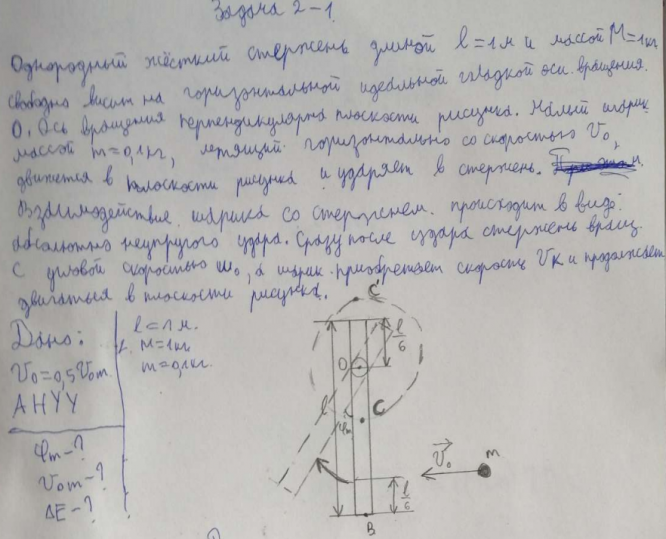 Задача 2-1
Однородный жёсткий стержень длиной l=1м и массой M=1кг
свободно висит на горизонтальной идеальной гладкой оси вращения
О. Ось вращения перпендикулярна плоскости рисунка. Малый шарик
массой m=0,1кг, летящий горизонтально со скоростью V₀,
движется в плоскости рисунка и ударяет в стержень.
Взаимодействие шарика со стержнем происходит в виде:
абсолютно неупругого удара. Сразу после удара стержень вращ.
с угловой скоростью ω₀, а шарик приобретает скорость Vк и продолжает
двигаться в плоскости рисунка.
Дано:
V₀=0,5V₀m
АНУУ
φm-?
V₀m-?
ΔE-?
l=1м.
M=1кг
m=0,1кг.
C
l/6
O
l
φm
C
V₀
m
l/6
B